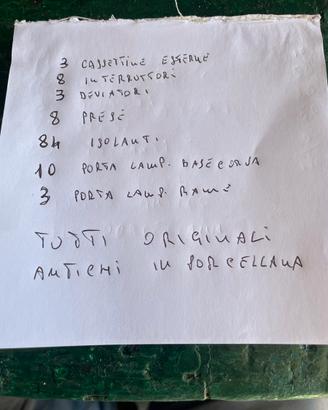 3 CASSETTINE ESTERNE
8 INTERRUTTORI
3 DEVIATORI
8 PRESE
84 ISOLANTI
10 PORTA LAMP. BASE CURVA
3 PORTA LAMP. RAME
TUTTI ORIGINALI
ANTICHI IN PORCELLANA